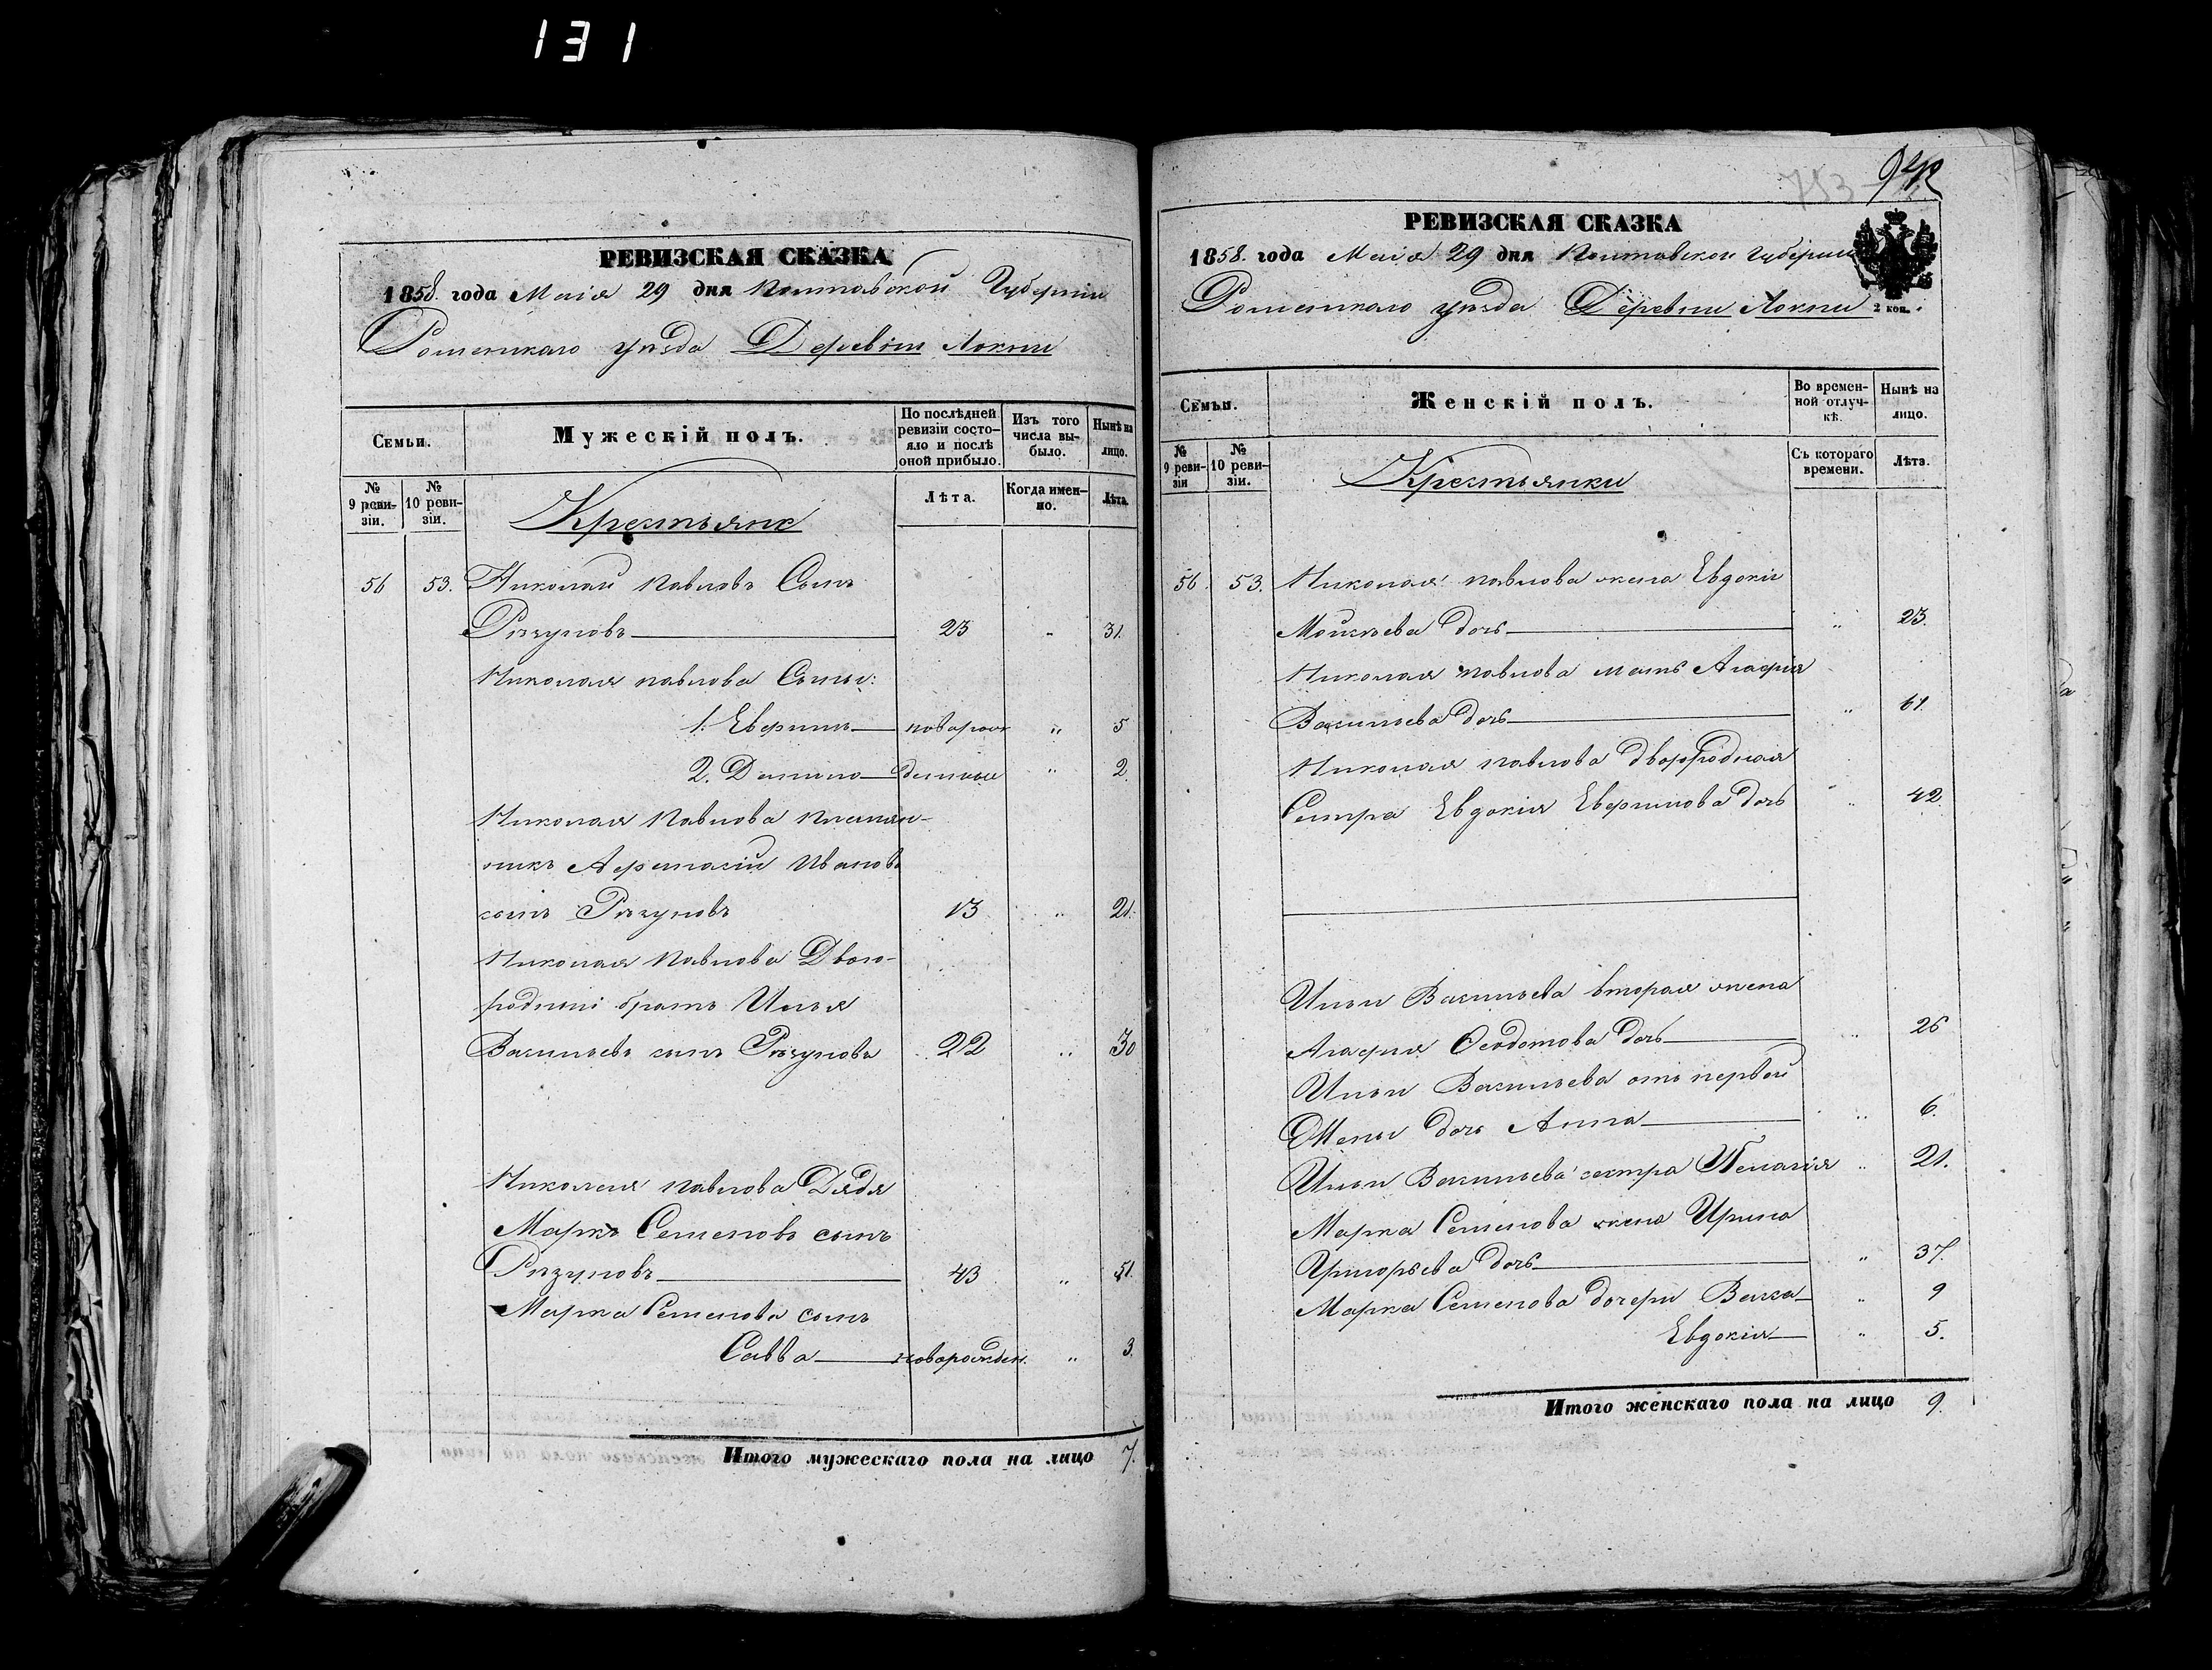 131
РЕВИЗСКАЯ СКАЗКА
1858. года Маія 29 дня Полтавской Губерніи
Роменскаго уѣзда Деревни Локни
Семьи.
Мужескій полъ.
По послѣдней ревизіи состо-яло и послѣ оной прибыло.
Изъ того числа вы-было.
Нынѣ на лицо.
№ 9 реви-зіи.
№ 10 реви-зіи.
Крестьяне
Лѣта.
Когда имен-но.
Лѣта.
56 53. Николай Павловъ Сынъ
Рѣзуновъ 23 " 31.
Николая Павлова Сыны:
1. Евфимъ новорож " 5
2. Данило денные " 2.
Николая Павлова племян-
никъ Афанасій Ивановъ
сынъ Рѣзуновъ 13 " 21.
Николая Павлова Двою-
родный братъ Илья
Васильевъ сынъ Рѣзуновъ 22 " 30
Николая Павлова Дядя
Марко Семеновъ сынъ
Рѣзуновъ 43 " 51.
Марка Семенова сынъ
Савва новорожден. " 3.
Итого мужескаго пола на лицо 7.
753
РЕВИЗСКАЯ СКАЗКА
1858. года Маія 29 дня Полтавской Губерніи
Роменскаго уѣзда Деревни Локни 2 коп.
Семьи.
Женскій полъ.
Во времен-ной отлуч-кѣ.
Нынѣ на лицо.
№ 9 реви-зіи
№ 10 реви-зіи.
Крестьянки
Съ котораго времени.
Лѣта.
56. 53. Николая Павлова жена Евдокія
Моисѣева дочь " 23.
Николая Павлова мать Агафія
Васильева дочь " 61.
Николая Павлова двоюродная
Сестра Евдокія Евфимова дочь " 42.
Ильи Васильева вторая жена
Агафия Феодотова дочь " 26
Ильи Васильева отъ первой
Жены дочь Анна " 6.
Ильи Васильева сестра Пелагія " 21.
Марка Семенова жена Ирина
Григорьева дочь " 37.
Марка Семенова дочери Васса " 9
Евдокія " 5.
Итого женскаго пола на лицо 9.